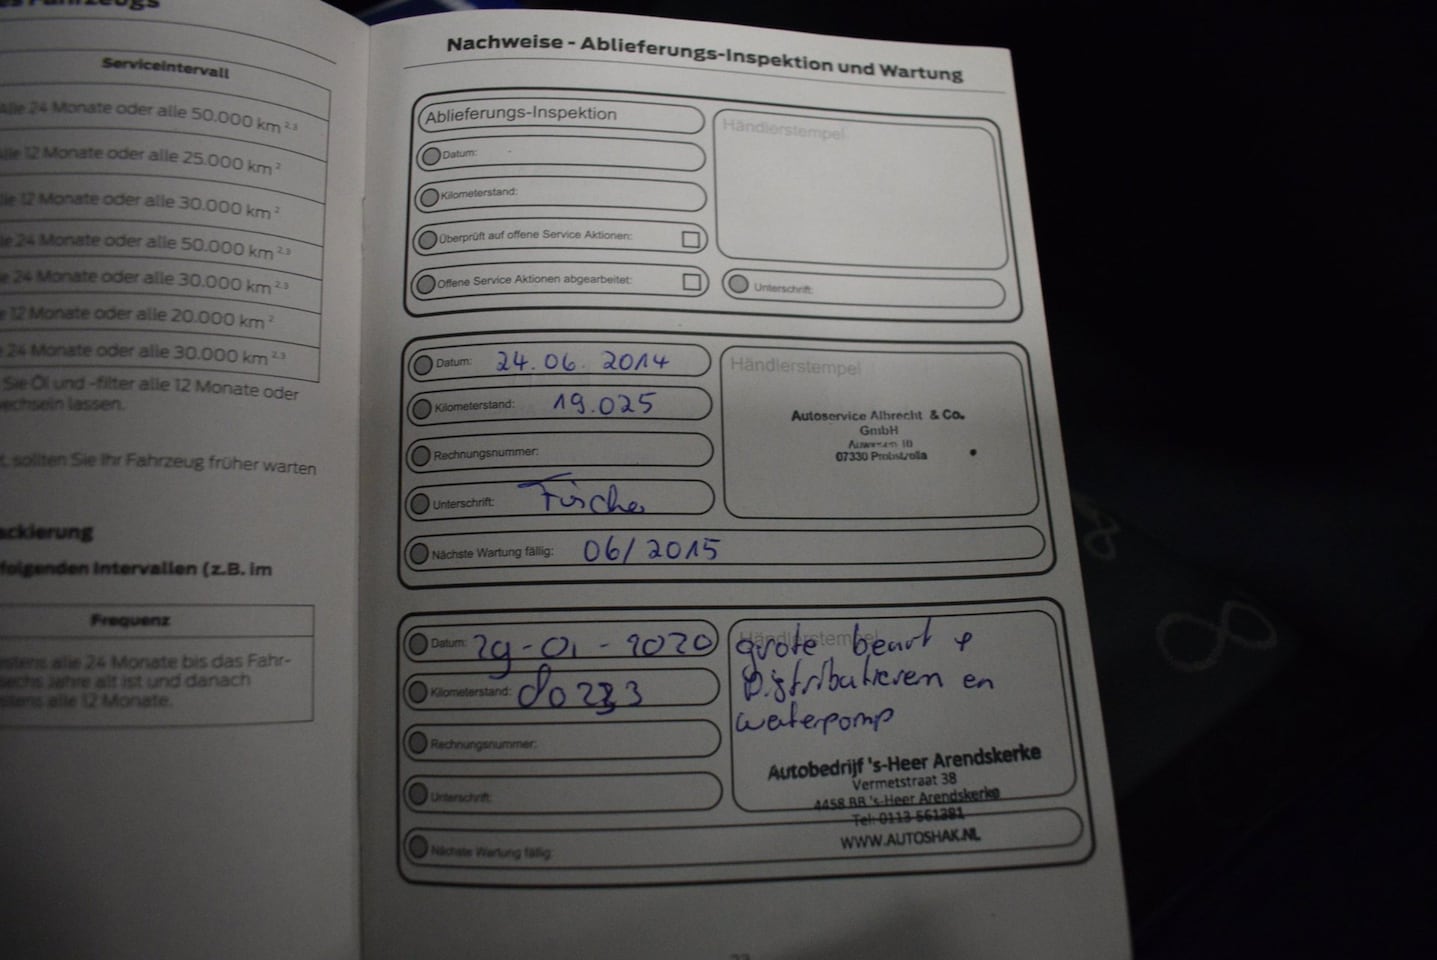 es Fahrzeugs
Serviceintervall
Alle 24 Monate oder alle 50.000 km 2,3
Alle 12 Monate oder alle 25.000 km 2
lle 12 Monate oder alle 30.000 km 2
le 24 Monate oder alle 50.000 km 2,3
e 24 Monate oder alle 30.000 km 2,3
e 12 Monate oder alle 20.000 km 2
24 Monate oder alle 30.000 km 2,3
Sie Öl und -filter alle 12 Monate oder
wechseln lassen.
t, sollten Sie Ihr Fahrzeug früher warten
ackierung
folgenden Intervallen (z.B. im
Frequenz
estens alle 24 Monate bis das Fahr-
sechs Jahre alt ist und danach
estens alle 12 Monate.
Nachweise - Ablieferungs-Inspektion und Wartung
Ablieferungs-Inspektion
Händlerstempel
Datum:
Kilometerstand:
Überprüft auf offene Service Aktionen:
Offene Service Aktionen abgearbeitet:
Unterschrift:
Datum: 24.06.2014
Kilometerstand: 19.025
Rechnungsnummer:
Unterschrift:
Nächste Wartung fällig: 06/2015
Händlerstempel
Autoservice Albrecht & Co.
GmbH
07330 Probstzella
Datum: 29-01-2020
Kilometerstand:
Rechnungsnummer:
Unterschrift:
Nächste Wartung fällig:
Händlerstempel
grote beurt +
Distributieriem en
waterpomp
Autobedrijf 's-Heer Arendskerke
Vermetstraat 38
4458 BB 's-Heer Arendskerke
Tel: 0113-561381
WWW.AUTOSHAK.NL